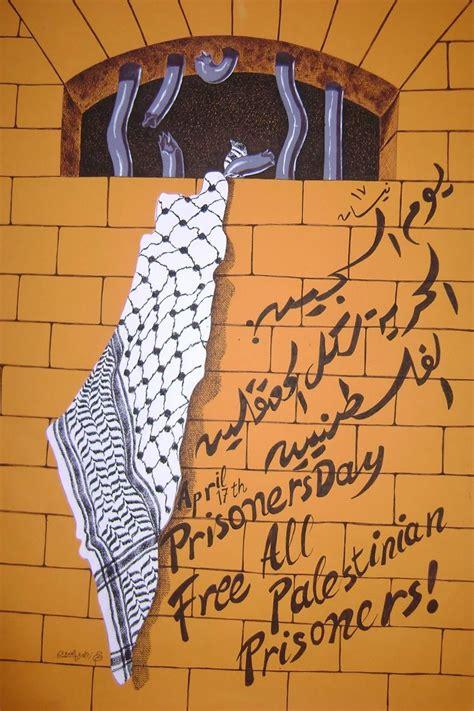 ١٧ نيسان
يوم السجين
الحرية لكل المعتقلين
الفلسطينيين
April 17th
Prisoners Day
Free All
Palestinian
Prisoners!